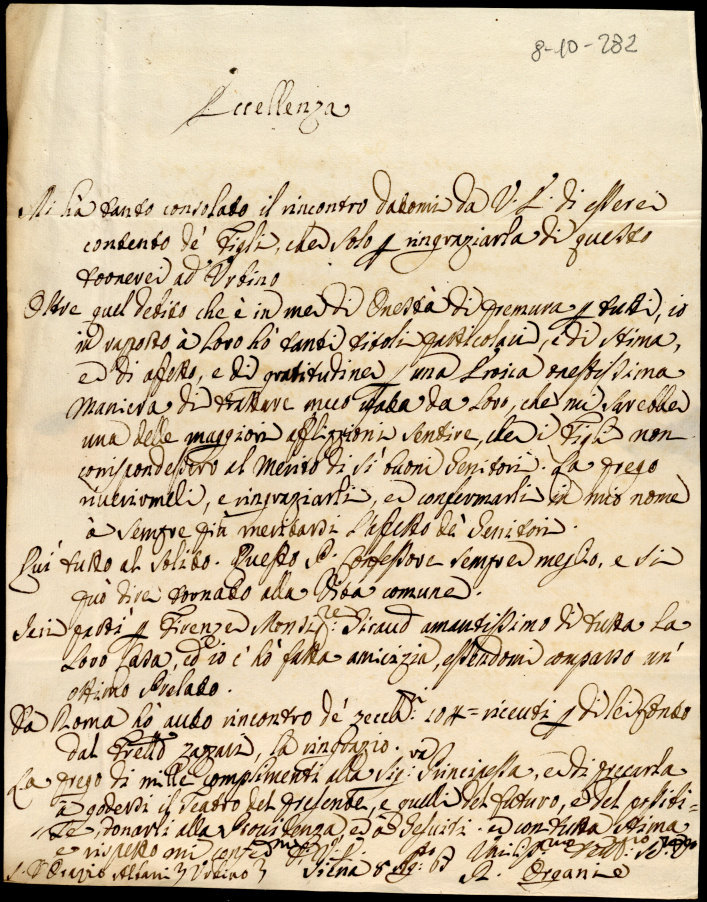 8-10-282
Eccellenza
Mi hà tanto consolato il rincontro datomi da V. E. di essere
contento de' Figli, che solo p ringraziarla di questo
tornerei ad Urbino
Oltre quel debito che è in me di Onestà di premura p tutti, io
in rapporto à Loro hò tanti titoli particolari, e di stima,
e di affetto, e di gratitudine p una Eroica onestissima
maniera di trattare meco usata da Loro, che mi sarebbe
una delle maggiori afflizzioni sentire, che i Figli non
corrispondessero al merito di sì buoni Genitori. La prego
riverirmeli, e ringraziarli, e confermarli in mio nome
à sempre più meritarsi l'affetto de' Genitori.
Qui tutto al solito. Questo P. Confessore sempre meglio, e si
può dire tornato alla Vita comune.
Ieri partì p Firenze Monsig.re Giraud amantissimo di tutta La
Loro Casa, ed io c'hò fatta amicizia, essendomi comparso un'
ottimo Prelato.
Da Roma hò auto rincontro de' zecch.ni 104 = ricevuti p di lei conto
dal Frello zagari, la ringrazio.
La prego di mille complimenti alla Sig.ra Principessa, e di precarla
à godersi il Teatro del presente, e quelli del futuro, e del possibi=
le, donarli alla Providenza, ed à Gesuiti. e con tutta stima
e rispetto mi conf.o D. V. E.
S. D. Orazio Albani Urbino Siena 8 Ag.to 63
R. Organte